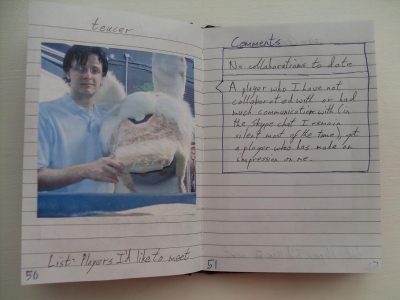 teucer
List: Players I'd like to meet
50
Comments
No collaborations to date
A player who I have not
collaborated with or had
much communication with (in
the Skype chat I remain
silent most of the time) yet
a player who has made an
impression on me.
51